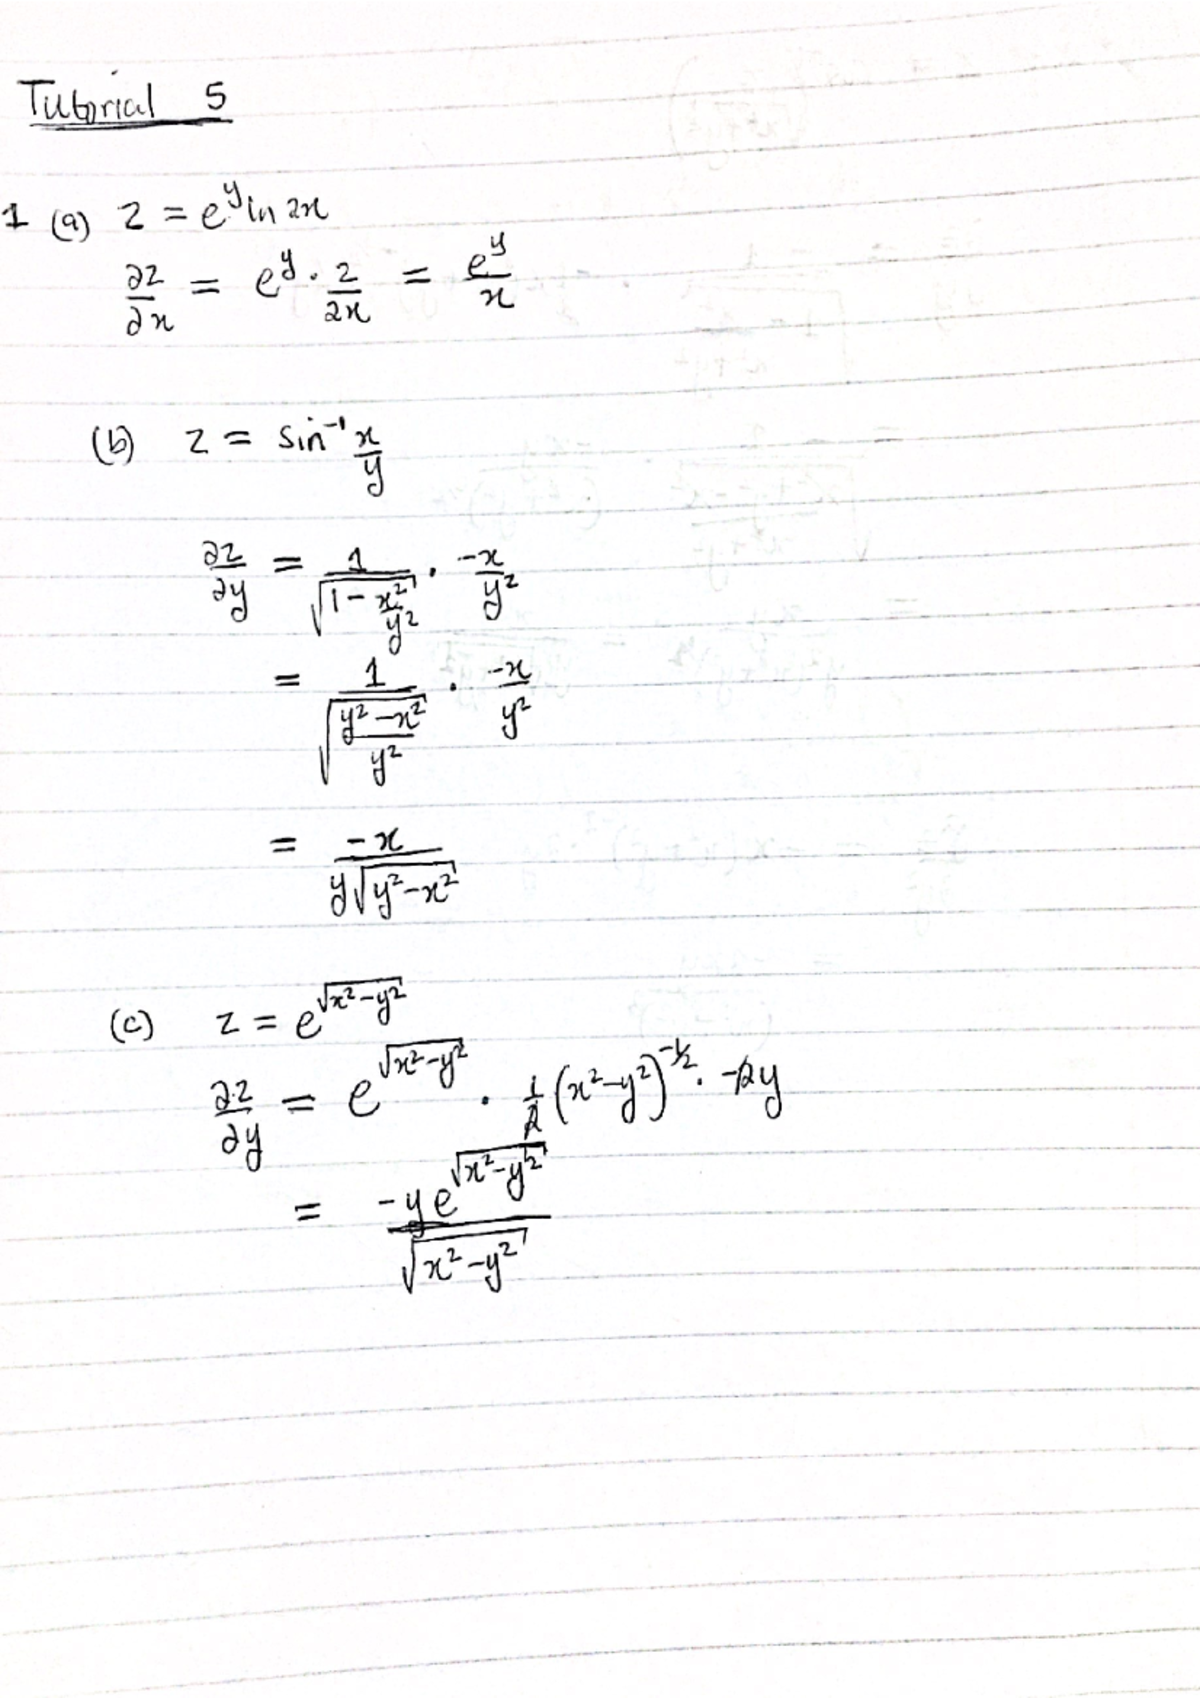 Tutorial 5
1 (a) z = e^y ln 2x
∂z/∂x = e^y · 2/2x = e^y/x
(b) z = sin⁻¹ x/y
∂z/∂y = 1/√(1 - x²/y²) · -x/y²
= 1/√((y² - x²)/y²) · -x/y²
= -x/(y√(y² - x²))
(c) z = e^√(x² - y²)
∂z/∂y = e^√(x² - y²) · 1/2 (x² - y²)^(-1/2) · -2y
= -y e^√(x² - y²)/√(x² - y²)